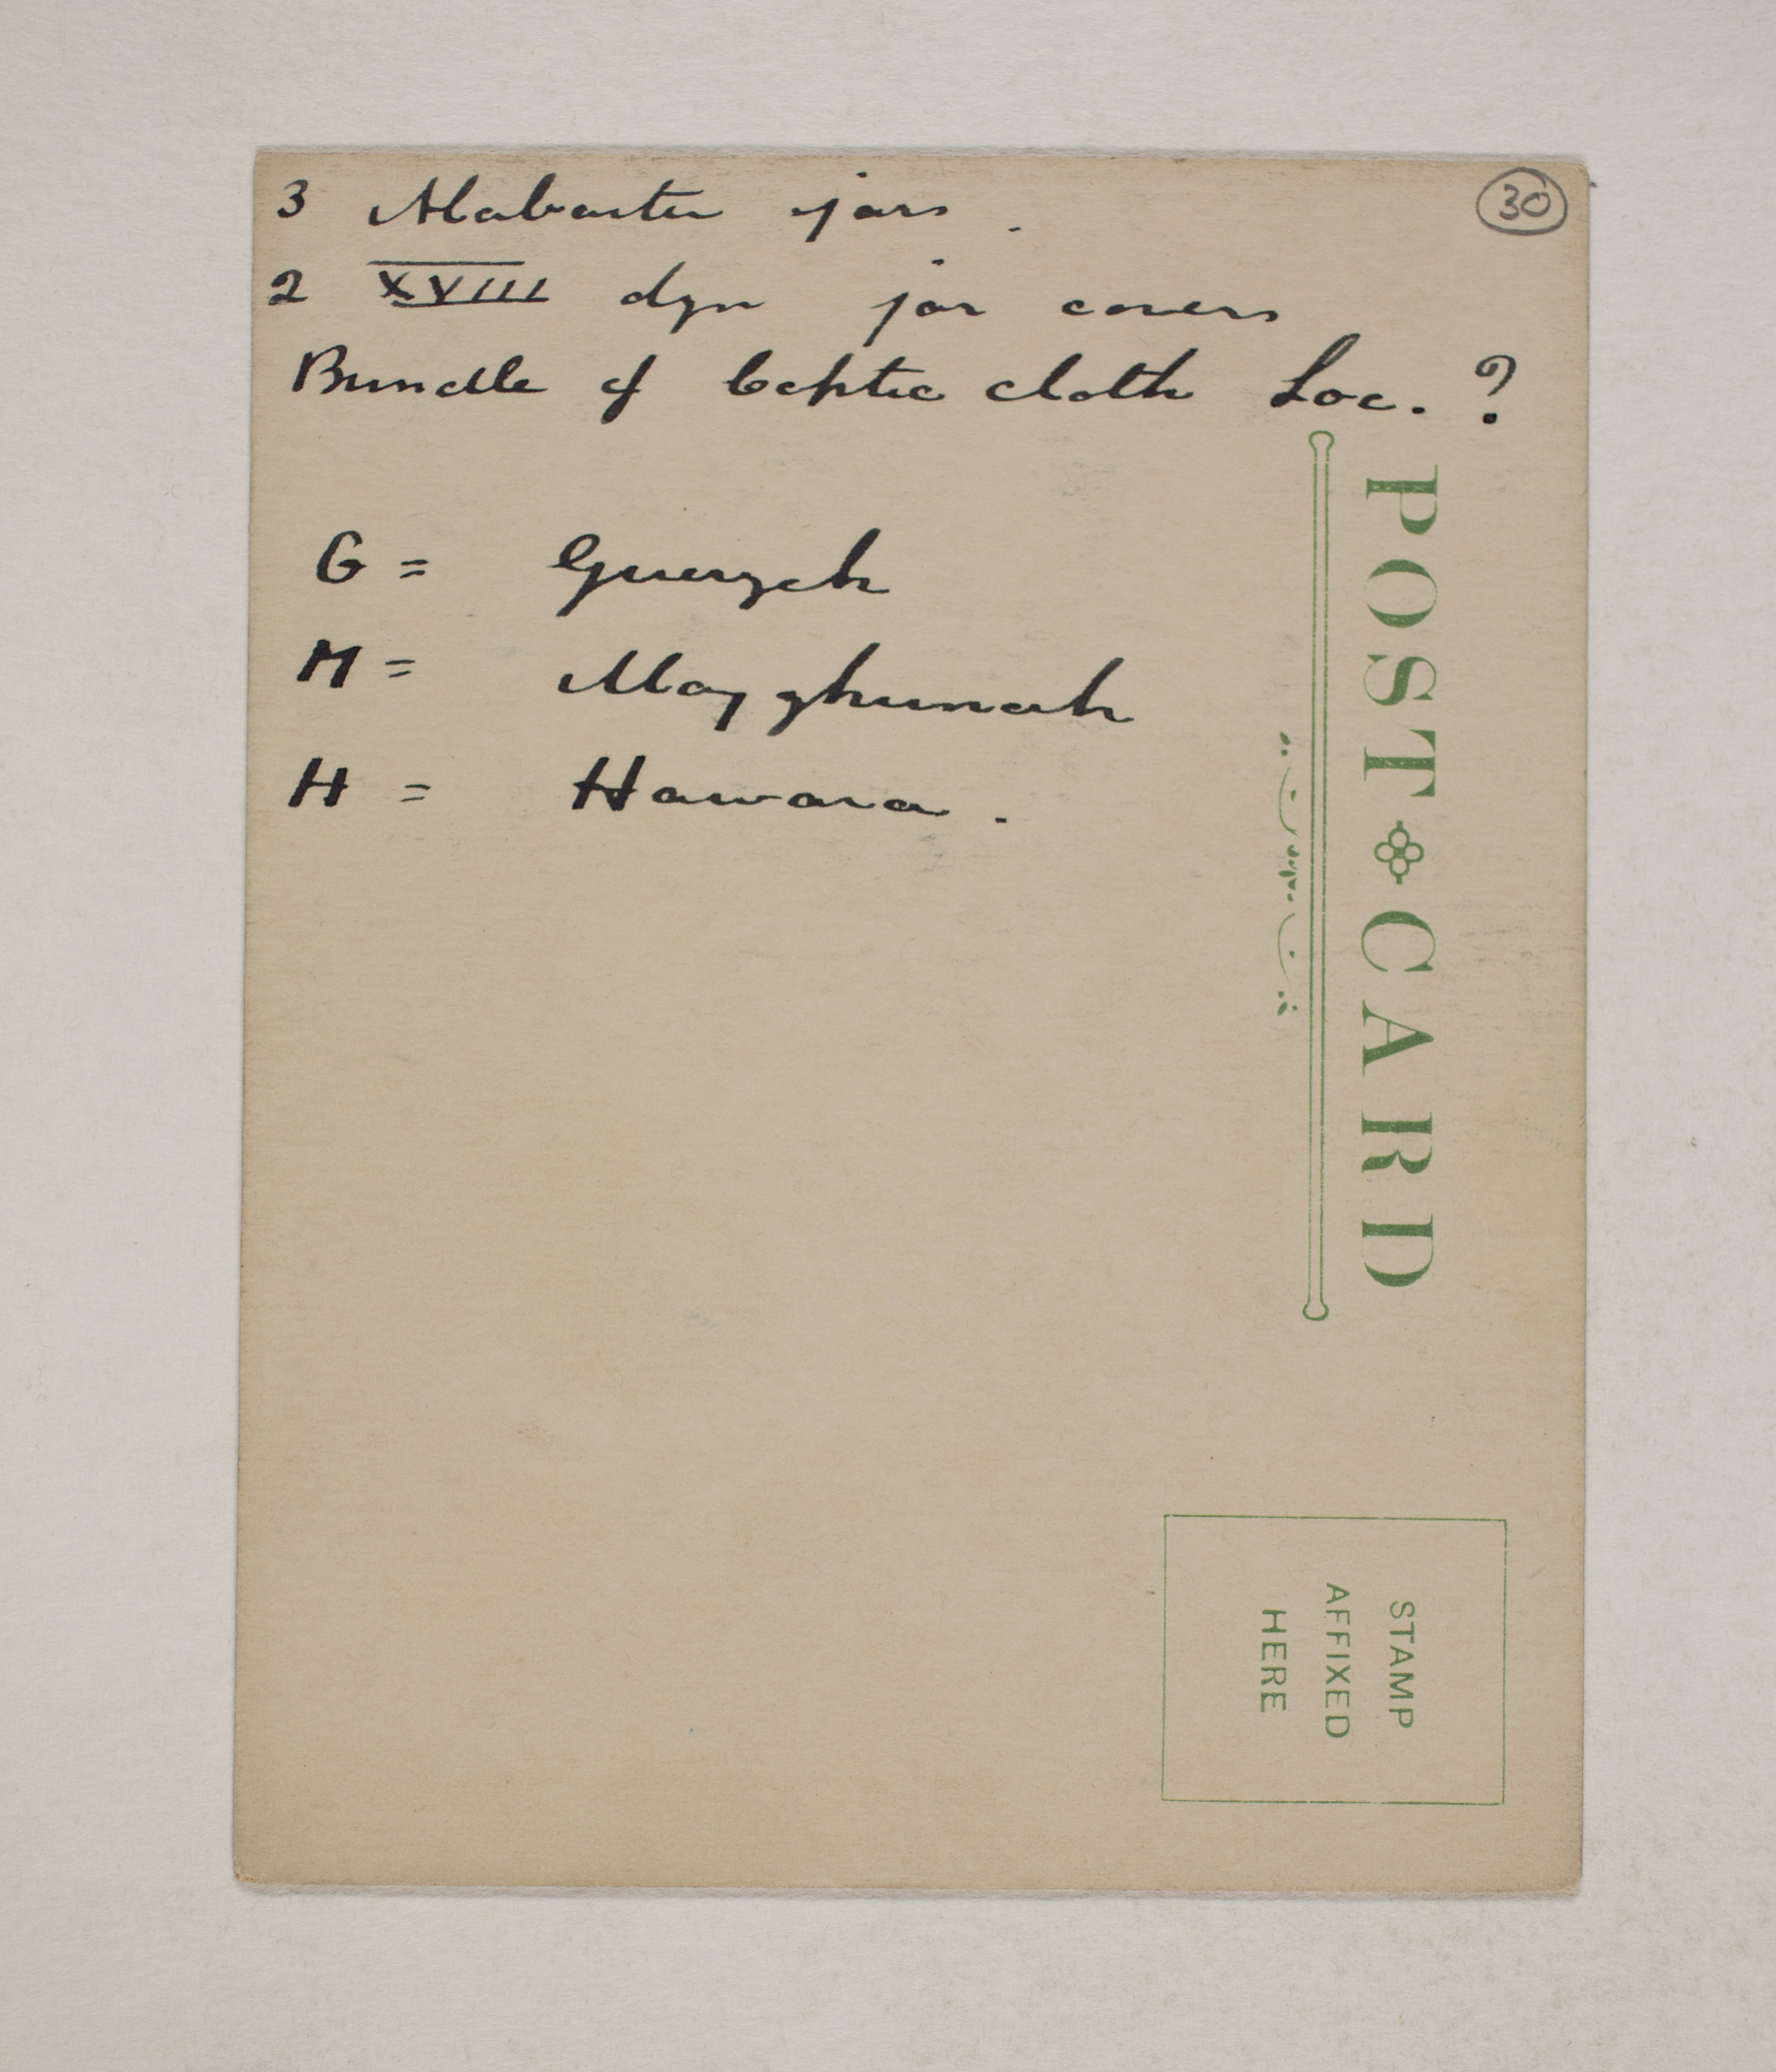 30
3 Alabaster jars.
2 XVIII dyn jar covers
Bundle of Coptic cloth Loc. ?
G = Guerzeh
M = Mazghuneh
H = Hawara.
POST CARD
STAMP
AFFIXED
HERE